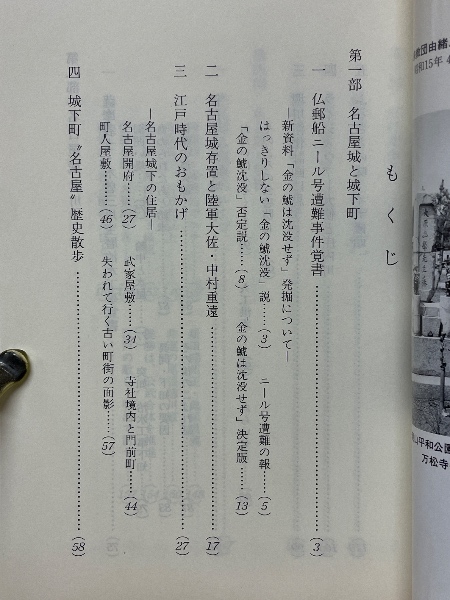 もくじ
第一部 名古屋城と城下町
一 仏郵船ニール号遭難事件覚書……(3)
―新資料「金の鯱は沈没せず」発掘について―
はっきりしない「金の鯱沈没」説……(3) ニール号遭難の報……(5)
「金の鯱沈没」否定説……(8) 金の鯱は沈没せず」決定版……(13)
二 名古屋城存置と陸軍大佐・中村重遠……(17)
三 江戸時代のおもかげ……(27)
―名古屋城下の住居―
名古屋開府……(27) 武家屋敷……(34) 寺社境内と門前町……(44)
町人屋敷……(46) 失われて行く古い町街の面影……(57)
四 城下町〝名古屋〟歴史散歩……(58)
教団由緒
昭和15年4
平和公園
万松寺